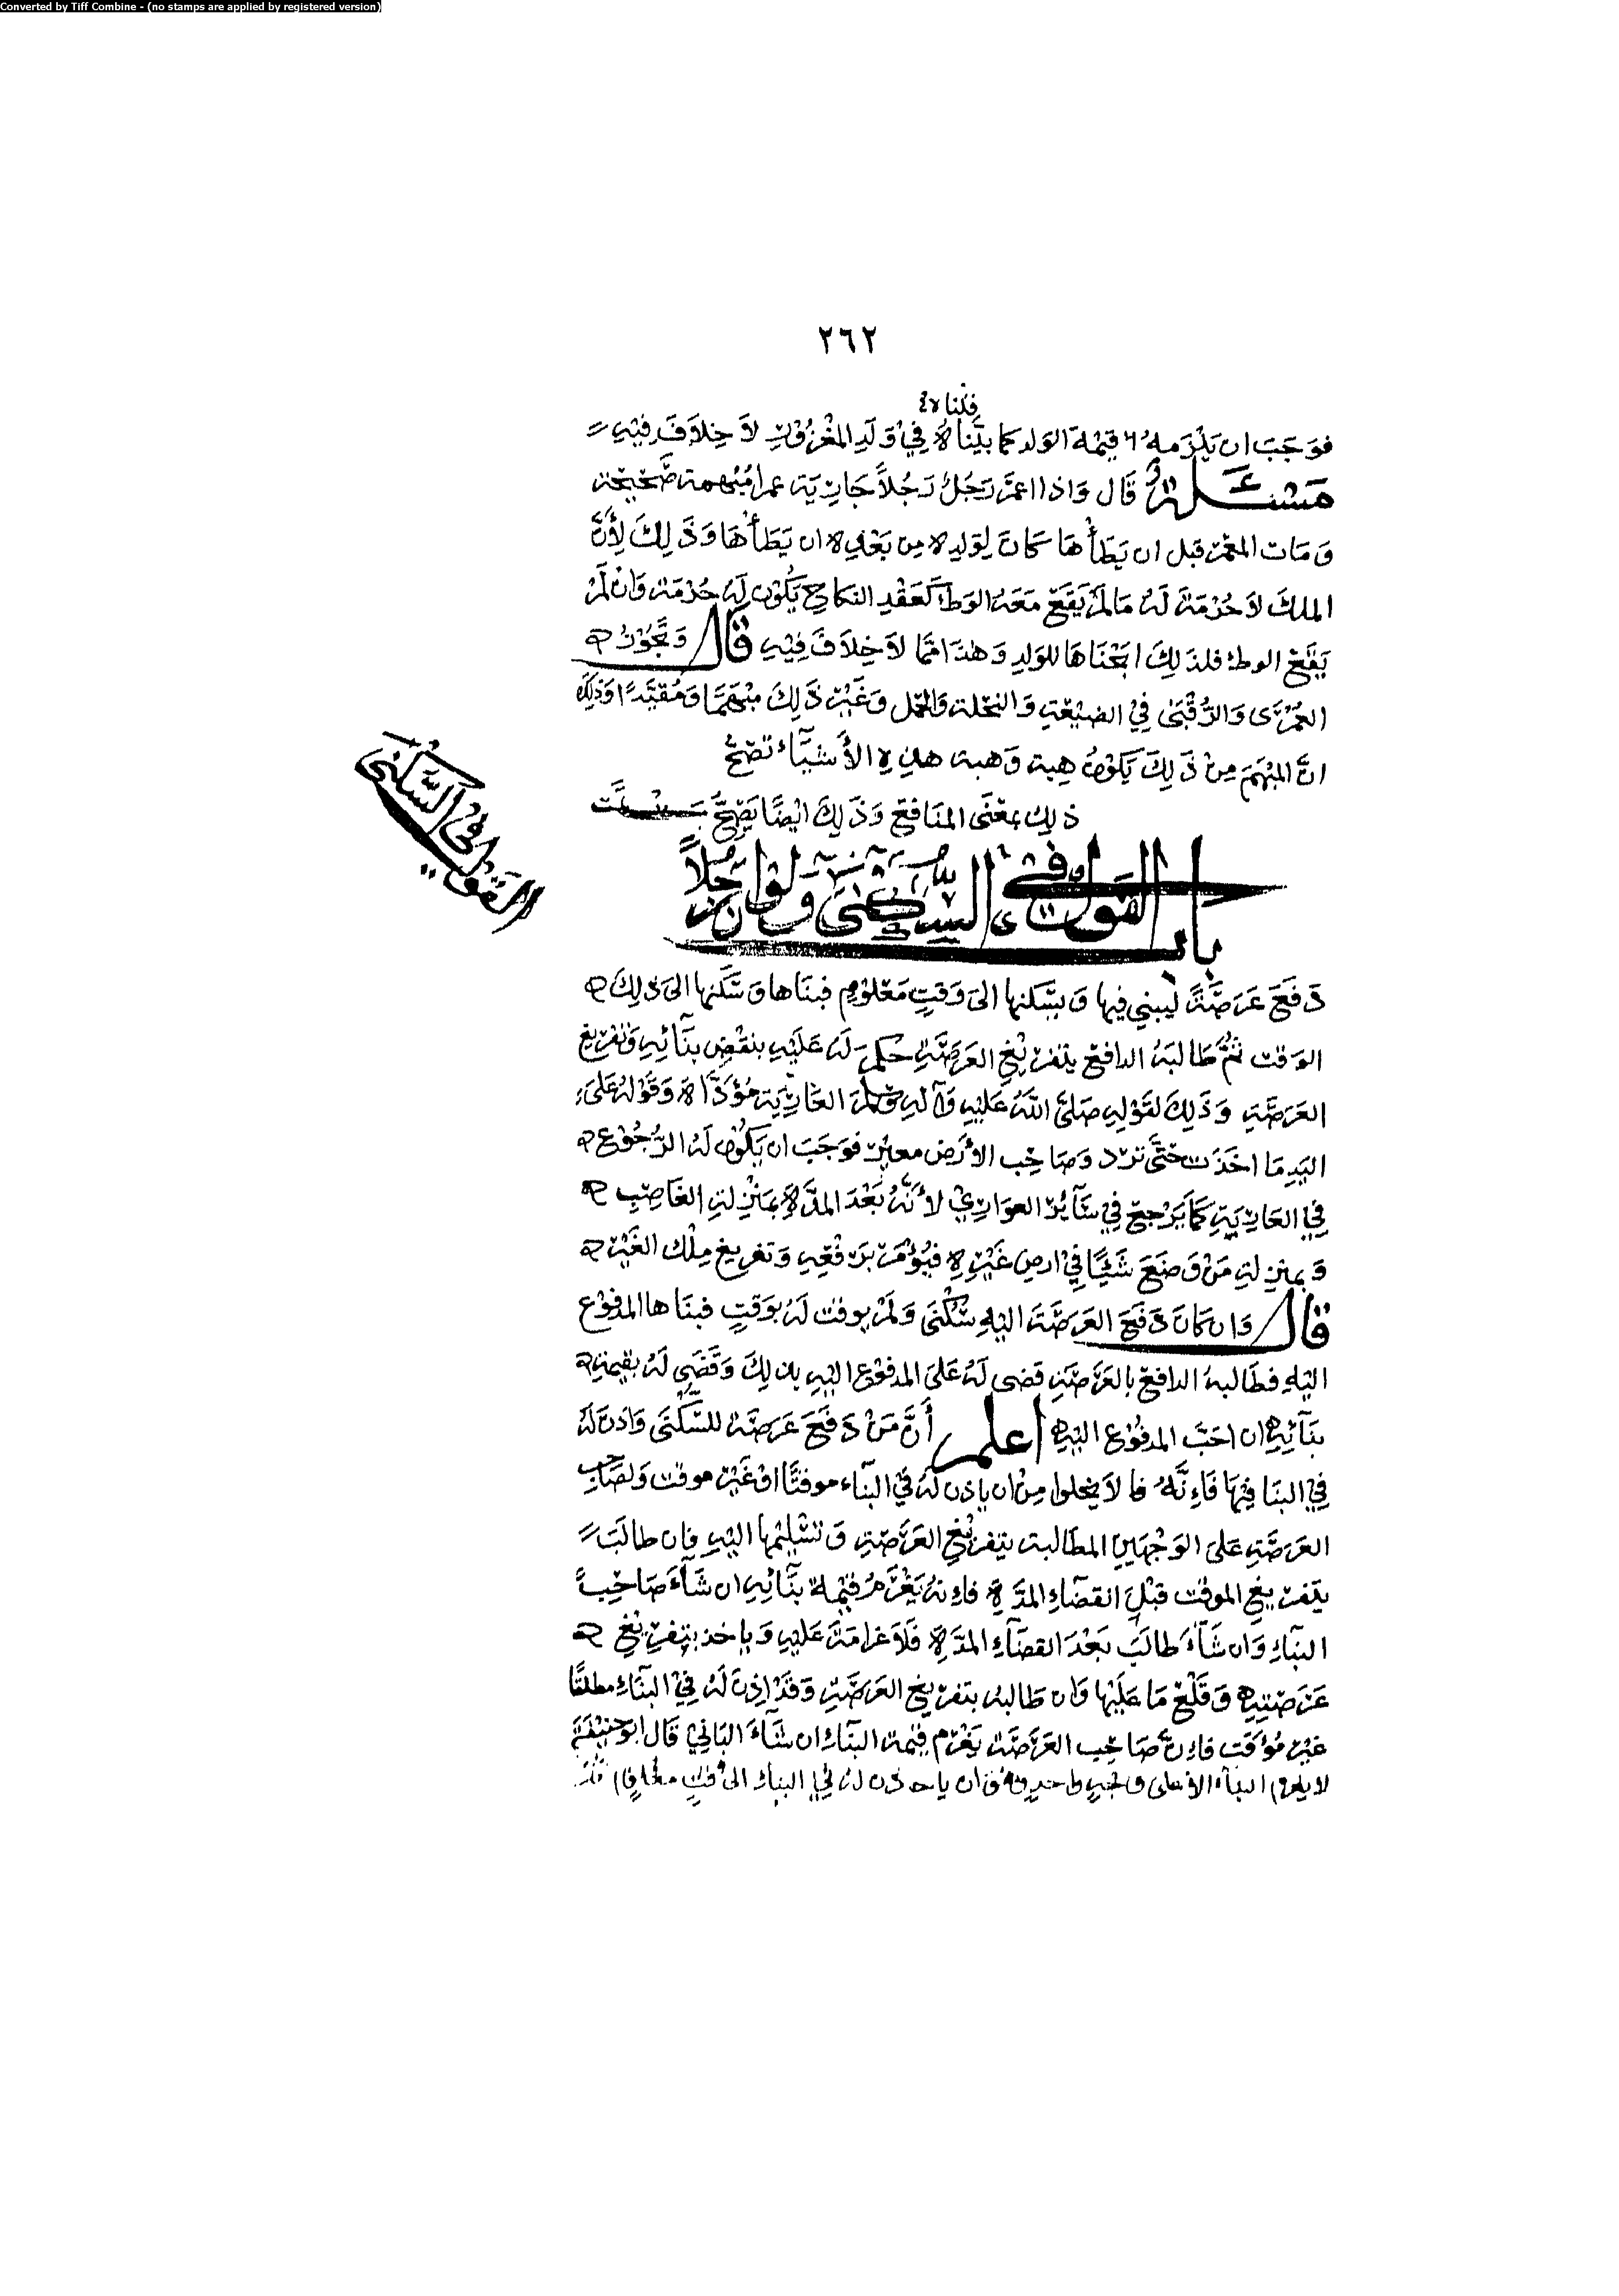 Converted by Tiff Combine - (no stamps are applied by registered version)
٢٦٢
فوَجَبَ ان يَلْزمهُ قيْمة الوَلد كما بيّناهُ فِيْ وَلَدِ المغْرُوْرِ لاَ خِلاَفَ فِيْهِ
مَسْئَلَة قال وَاذا اعمَرَ رَجُلٌ رَجُلاً جَارِيَة عمرا مُبْهمة صَحِيْحة
وَمَات المعْمِر قبل ان يَطَأهَا كَانَ لِوَلدِهِ مِن بَعْدِهِ ان يَطَأهَا وَذَلِكَ لِأَنَّ
الملكَ لاَ حُرْمَةَ لَهُ مَا لَمْ يَقَعْ مَعَهُ الوَطءُ كَعَقْدِ النكاحِ يَكُوْن لَهُ حُرْمَة وَانْ لَمْ
يَقَعْ الوطء فلذلِكَ ابَحْنَاهَا للوَلدِ وَهَذا مِمَّا لاَ خِلاَفَ فِيْهِ قَالَ وَتَجُوْزُ
العُمْرَى وَالرُّقْبَى فِيْ الضيْعَةِ وَالنخلة وَالجمَل وَغَيْرِ ذَلِكَ مبْهَمًا وَمُقيَّدًا وَذلِكَ
انَّ المبْهَمَ مِنْ ذَلِكَ يَكُوْنُ هِبة وَهبة هذِهِ الأَشيَآء تصِحُّ
ذلِكَ بمعْنَى المنَافعِ وَذَلِكَ ايْضًا يَصِحُّ
بَابُ القول فِي السُّكْنَى وَلو انَّ رَجُلاً
القول في السُّكنَى
دَفَعَ عَرَصَةً ليبني فيها وَيسْكنها الىَ وَقتٍ مَعْلوْمٍ فبنَاها وَسَكنها الى ذلِكَ
الوَقت ثمَّ طَالبَهُ الدافعُ بتفريْغِ العَرَصَةِ حكِمَ لَهُ عَليْهِ بنقْضِ بنَآئِهِ وَتفْرِيغِ
العَرصَةِ وَذَلِكَ لقَوْلِهِ صَلىَّ اللَّهُ عَليْهِ وَآلهِ وَسَلمَ العَارِيَة مُؤَدَّاة وَقَوْلهُ عَلىَ
اليَدِ مَا اخَذَت حتَّى تردّ وَصَاحِب الأَرْض معيْر فوَجَبَ ان يَكُوْنَ لَهُ الرُّجُوْع
فِي العَارِيَةِ كَمَا يَرْجعُ فِي سَآئِر العوَارِي لأَنَّهُ بَعْدَ المدَّةِ بمَنْزِلةِ الغَاصِبِ
وَبمنزِلةِ مَنْ وَضَعَ شَيْئًا فِيْ ارضِ غَيْرِهِ فيُؤْمَر برَفْعِهِ وَتفريغِ مِلْك الغَيْر
قَالَ وَان كَانَ دَفَعَ العَرَصَةَ اليْهِ سُكْنَى وَلَمْ يوقت لَهُ بوَقتٍ فبنَاها المدفوْع
اليْهِ فطَالبهُ الدافعُ بالعَرَصَةِ قضى لَهُ عَلىَ المدفوْع اليْهِ بذلِكَ وَقَضَى لَهُ بقيمة
بنَآئِهِ ان احَبَّ المدفوْع اليْهِ اعلم أَنَّ مَنْ دَفَعَ عَرصَةً للسّكْنَى وَاذنَ لَهُ
فِيْ البنَا فِيْهَا فَاِنَّهُ لاَ يخلوا مِنْ ان ياذن لَهُ فِيْ البنَآء موقتًا اوْ غَيْر موقت وَلصَاحِب
العَرَصَةِ عَلىَ الوَجْهَيْنِ المطَالبة بتفريْغِ العَرَصَةِ وَتسْليْمِهَا اليْهِ فان طالبَ
بتفريغِ الموقت قبْلَ انقضآءِ المدَّةِ فاِنهُ يَغْرَمُ قيْمةَ بنَآئِهِ ان شَآءَ صَاحِبُ
البنَآءِ وَان شَآءَ طالَبَ بَعْدَ انقضَآءِ المدَّةِ فَلاَ غرامَةَ عَليْهِ وَياخذ بتفرِيْغِ
عَرَصَتِهِ وَقَلْعِ مَا عَليْهَا وَان طَالبهُ بتفريغِ العَرَصَةِ وَقَدْ اذِنَ لَهُ فِيْ البنَآءِ مطلقًا
غيْر مُؤَقت فاِنَّ صَاحِب العَرَصَة يَغْرَم قيْمة البنَآءِ ان شَآءَ البَانِيْ قَال ابوحَنيْفَة
لا يغرم البنآء الا على وَجْهٍ وَاحدٍ وَهُوَ ان ياذن لهُ فِي البنآء الى وقتٍ